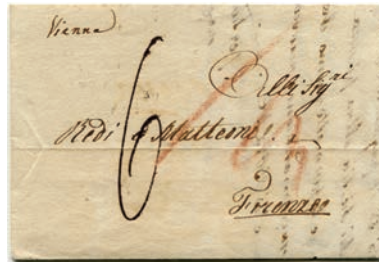 Vienna
Alli Sig.ri
Redi e Matteoni
6
Firenze